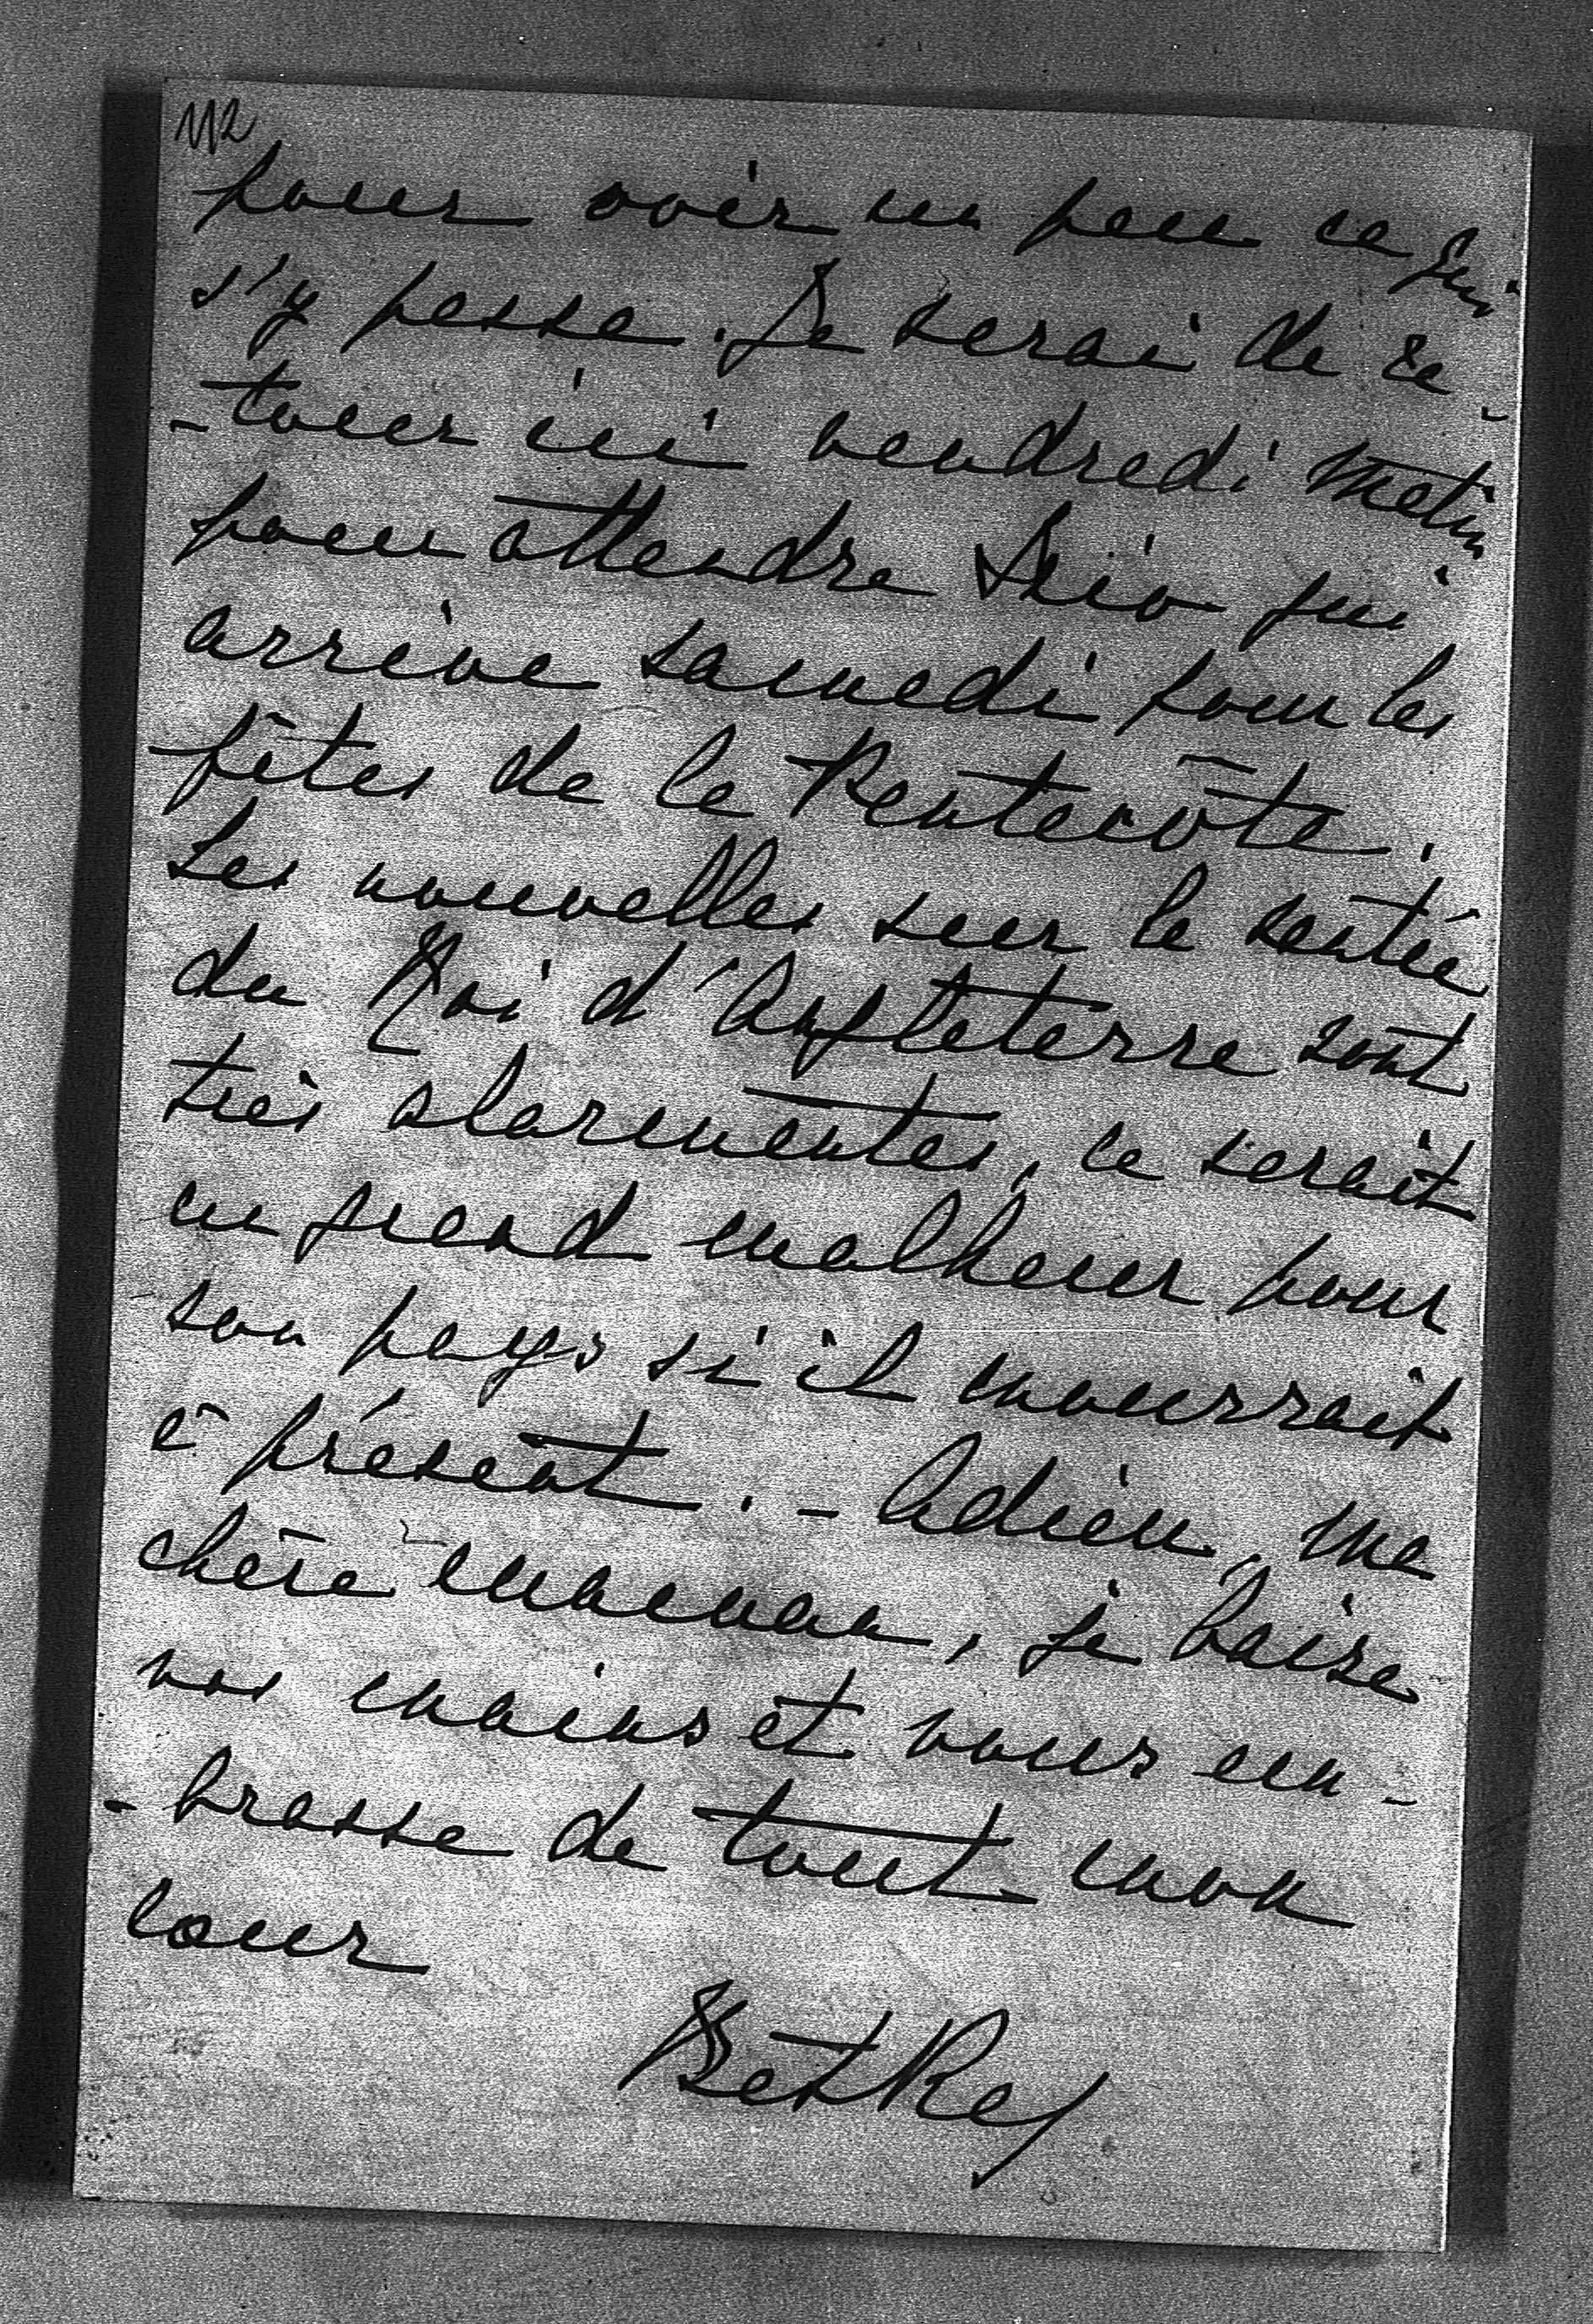 112
pour voir un peu ce qui
s'y passe. Je serai de re-
-tour ici vendredi matin
pour attendre qui
arrive samedi pour les
fêtes de la Pentecôte.
Les nouvelles sur la santée
du Roi d'Angleterre sont
très alarmantes, ce serait
un grand malheur pour
son pays si il mourrait
à présent. - Adieu, ma
chère maman, je baise
vos mains et vous em-
-brasse de tout mon
coeur